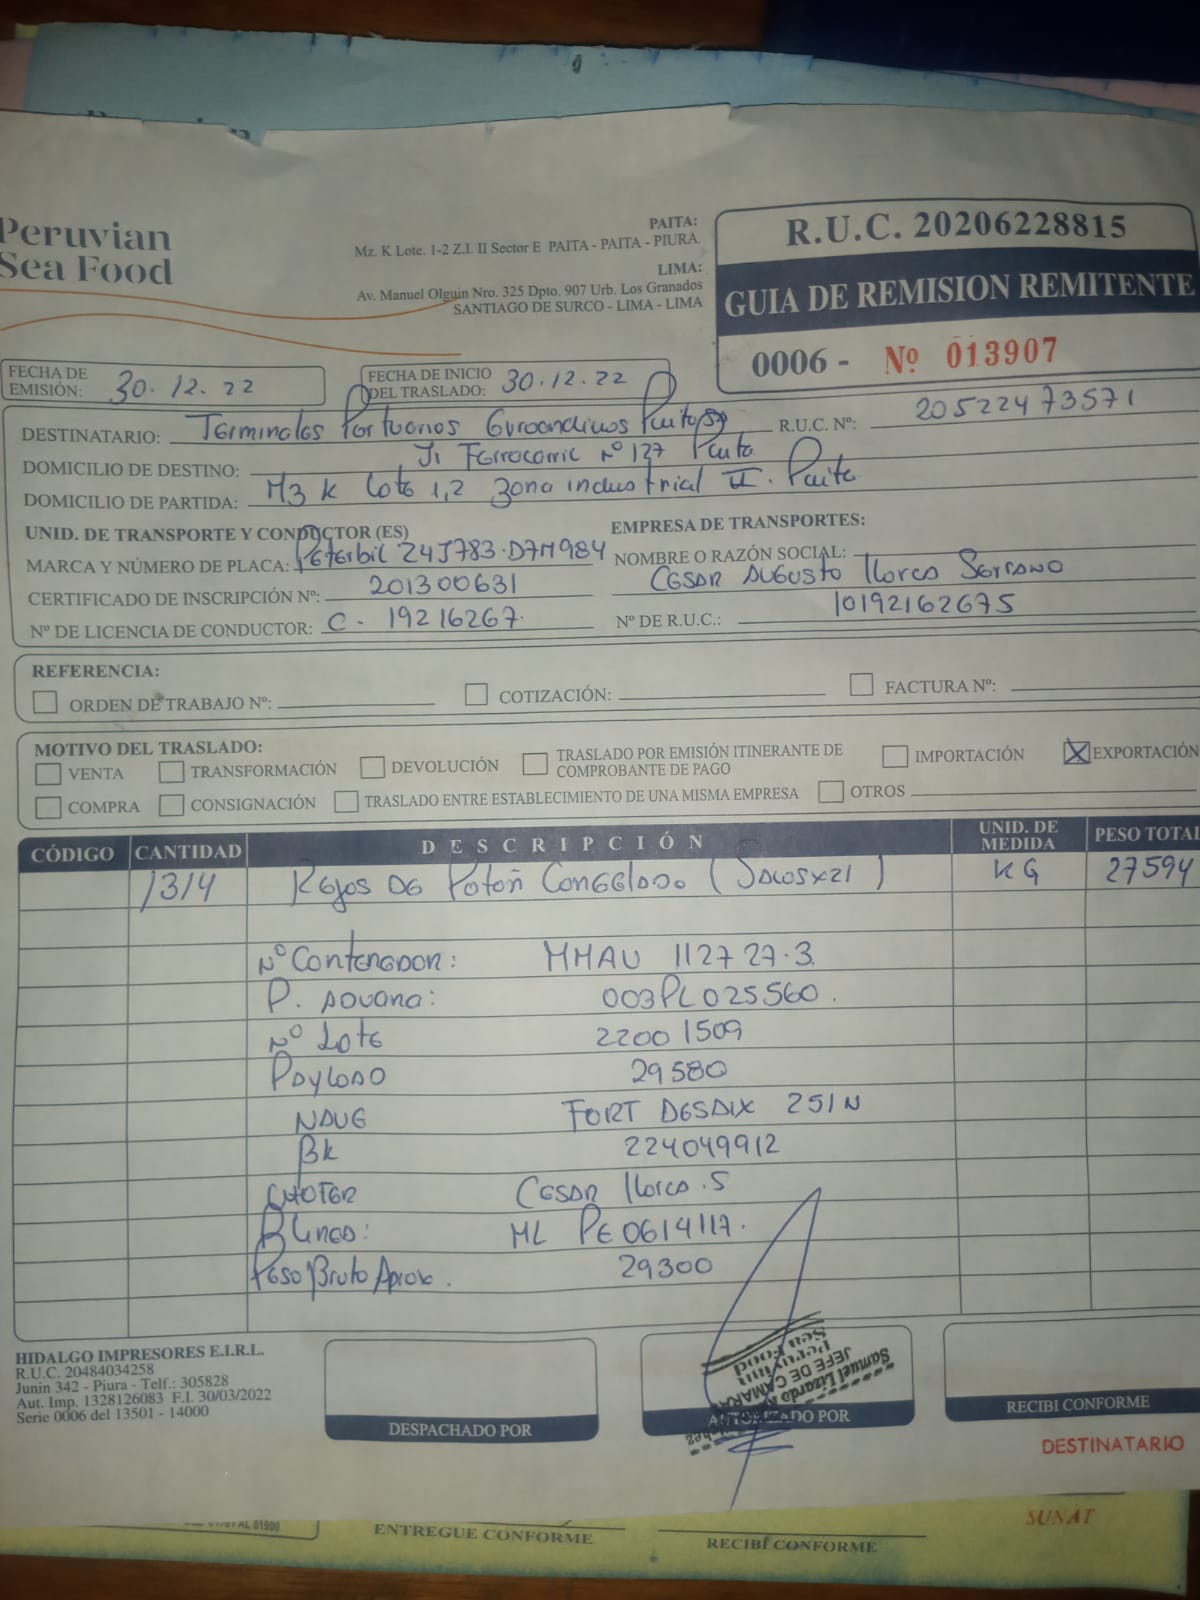 Peruvian
Sea Food
PAITA:
Mz. K Lote. 1-2 Z.I. II Sector E PAITA - PAITA - PIURA
LIMA:
Av. Manuel Olguin Nro. 325 Dpto. 907 Urb. Los Granados
SANTIAGO DE SURCO - LIMA - LIMA
R.U.C. 20206228815
GUIA DE REMISION REMITENTE
0006 - Nº 013907
FECHA DE EMISIÓN: 30.12.22
FECHA DE INICIO DEL TRASLADO: 30.12.22
DESTINATARIO: Terminales Portuarios Euroandinos Paita SA
R.U.C. Nº: 20522473571
DOMICILIO DE DESTINO: Jr Ferrocarril Nº 127 Paita
DOMICILIO DE PARTIDA: Mz K Lote 1,2 zona industrial II. Paita
UNID. DE TRANSPORTE Y CONDUCTOR (ES)
MARCA Y NÚMERO DE PLACA: Peterbil Z4J783.D7M984
CERTIFICADO DE INSCRIPCIÓN Nº: 201300631
Nº DE LICENCIA DE CONDUCTOR: C. 19216267.
EMPRESA DE TRANSPORTES:
NOMBRE O RAZÓN SOCIAL:
Cesar Augusto Llorca Serrano
Nº DE R.U.C.: 10192162675
REFERENCIA:
ORDEN DE TRABAJO Nº:
COTIZACIÓN:
FACTURA Nº:
MOTIVO DEL TRASLADO:
VENTA TRANSFORMACIÓN DEVOLUCIÓN TRASLADO POR EMISIÓN ITINERANTE DE COMPROBANTE DE PAGO IMPORTACIÓN X EXPORTACIÓN
COMPRA CONSIGNACIÓN TRASLADO ENTRE ESTABLECIMIENTO DE UNA MISMA EMPRESA OTROS
CÓDIGO CANTIDAD DESCRIPCIÓN UNID. DE MEDIDA PESO TOTAL
1314 Rejos De Poton Congelado (Sacosx21) KG 27594
Nº Contenedor: MMAU 112727.3
P. Aduana: 003PL025560.
Nº Lote 22001509
Payload 29580
Nave FORT DESAIX 251N
Bk 224049912
CHOFER Cesar Llorca.S
P. Linea: ML PE0614117.
Peso Bruto Aprox. 29300
HIDALGO IMPRESORES E.I.R.L.
R.U.C. 20484034258
Junin 342 - Piura - Telf.: 305828
Aut. Imp. 1328126083 F.I. 30/03/2022
Serie 0006 del 13501 - 14000
DESPACHADO POR
Samuel Lizardo
JEFE DE CAMARA
Peruvian
Sea Food
AUTORIZADO POR
RECIBI CONFORME
DESTINATARIO
AL 01900
ENTREGUE CONFORME
RECIBÍ CONFORME
SUNAT